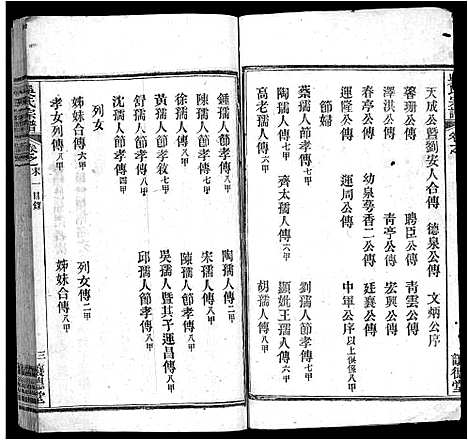 天成公暨劉安人合傳　德泉公傳　文炳公序
馨珊公傳　聘臣公傳　青雲公傳
澤淇公傳　青亭公傳　宏興公傳
春亭公傳　幼泉蓉香二公傳　廷襄公傳
運隆公傳　運周公傳　中軍公序以上八甲
節婦
蔡孺人傳八甲　劉孺人傳八甲
陶孺人傳八甲　齊太孺人傳六甲　顯妣王孺人傳八甲
高老孺人傳八甲　胡孺人傳八甲
鍾孺人節孝傳八甲　陶孺人傳二甲
陳孺人節孝傳　陳孺人節孝傳八甲
徐孺人傳八甲　徐孺人節孝傳八甲
黃孺人節孝敘八甲　吳孺人暨其子運昌傳八甲
舒孺人節孝傳八甲　邱孺人節孝傳八甲
沈孺人節孝傳四甲
列女
姊妹合傳六甲　列女傳二甲
孝女列傳八甲　姊妹合傳八甲
吳氏宗譜　卷之末一目錄　三　讓德堂